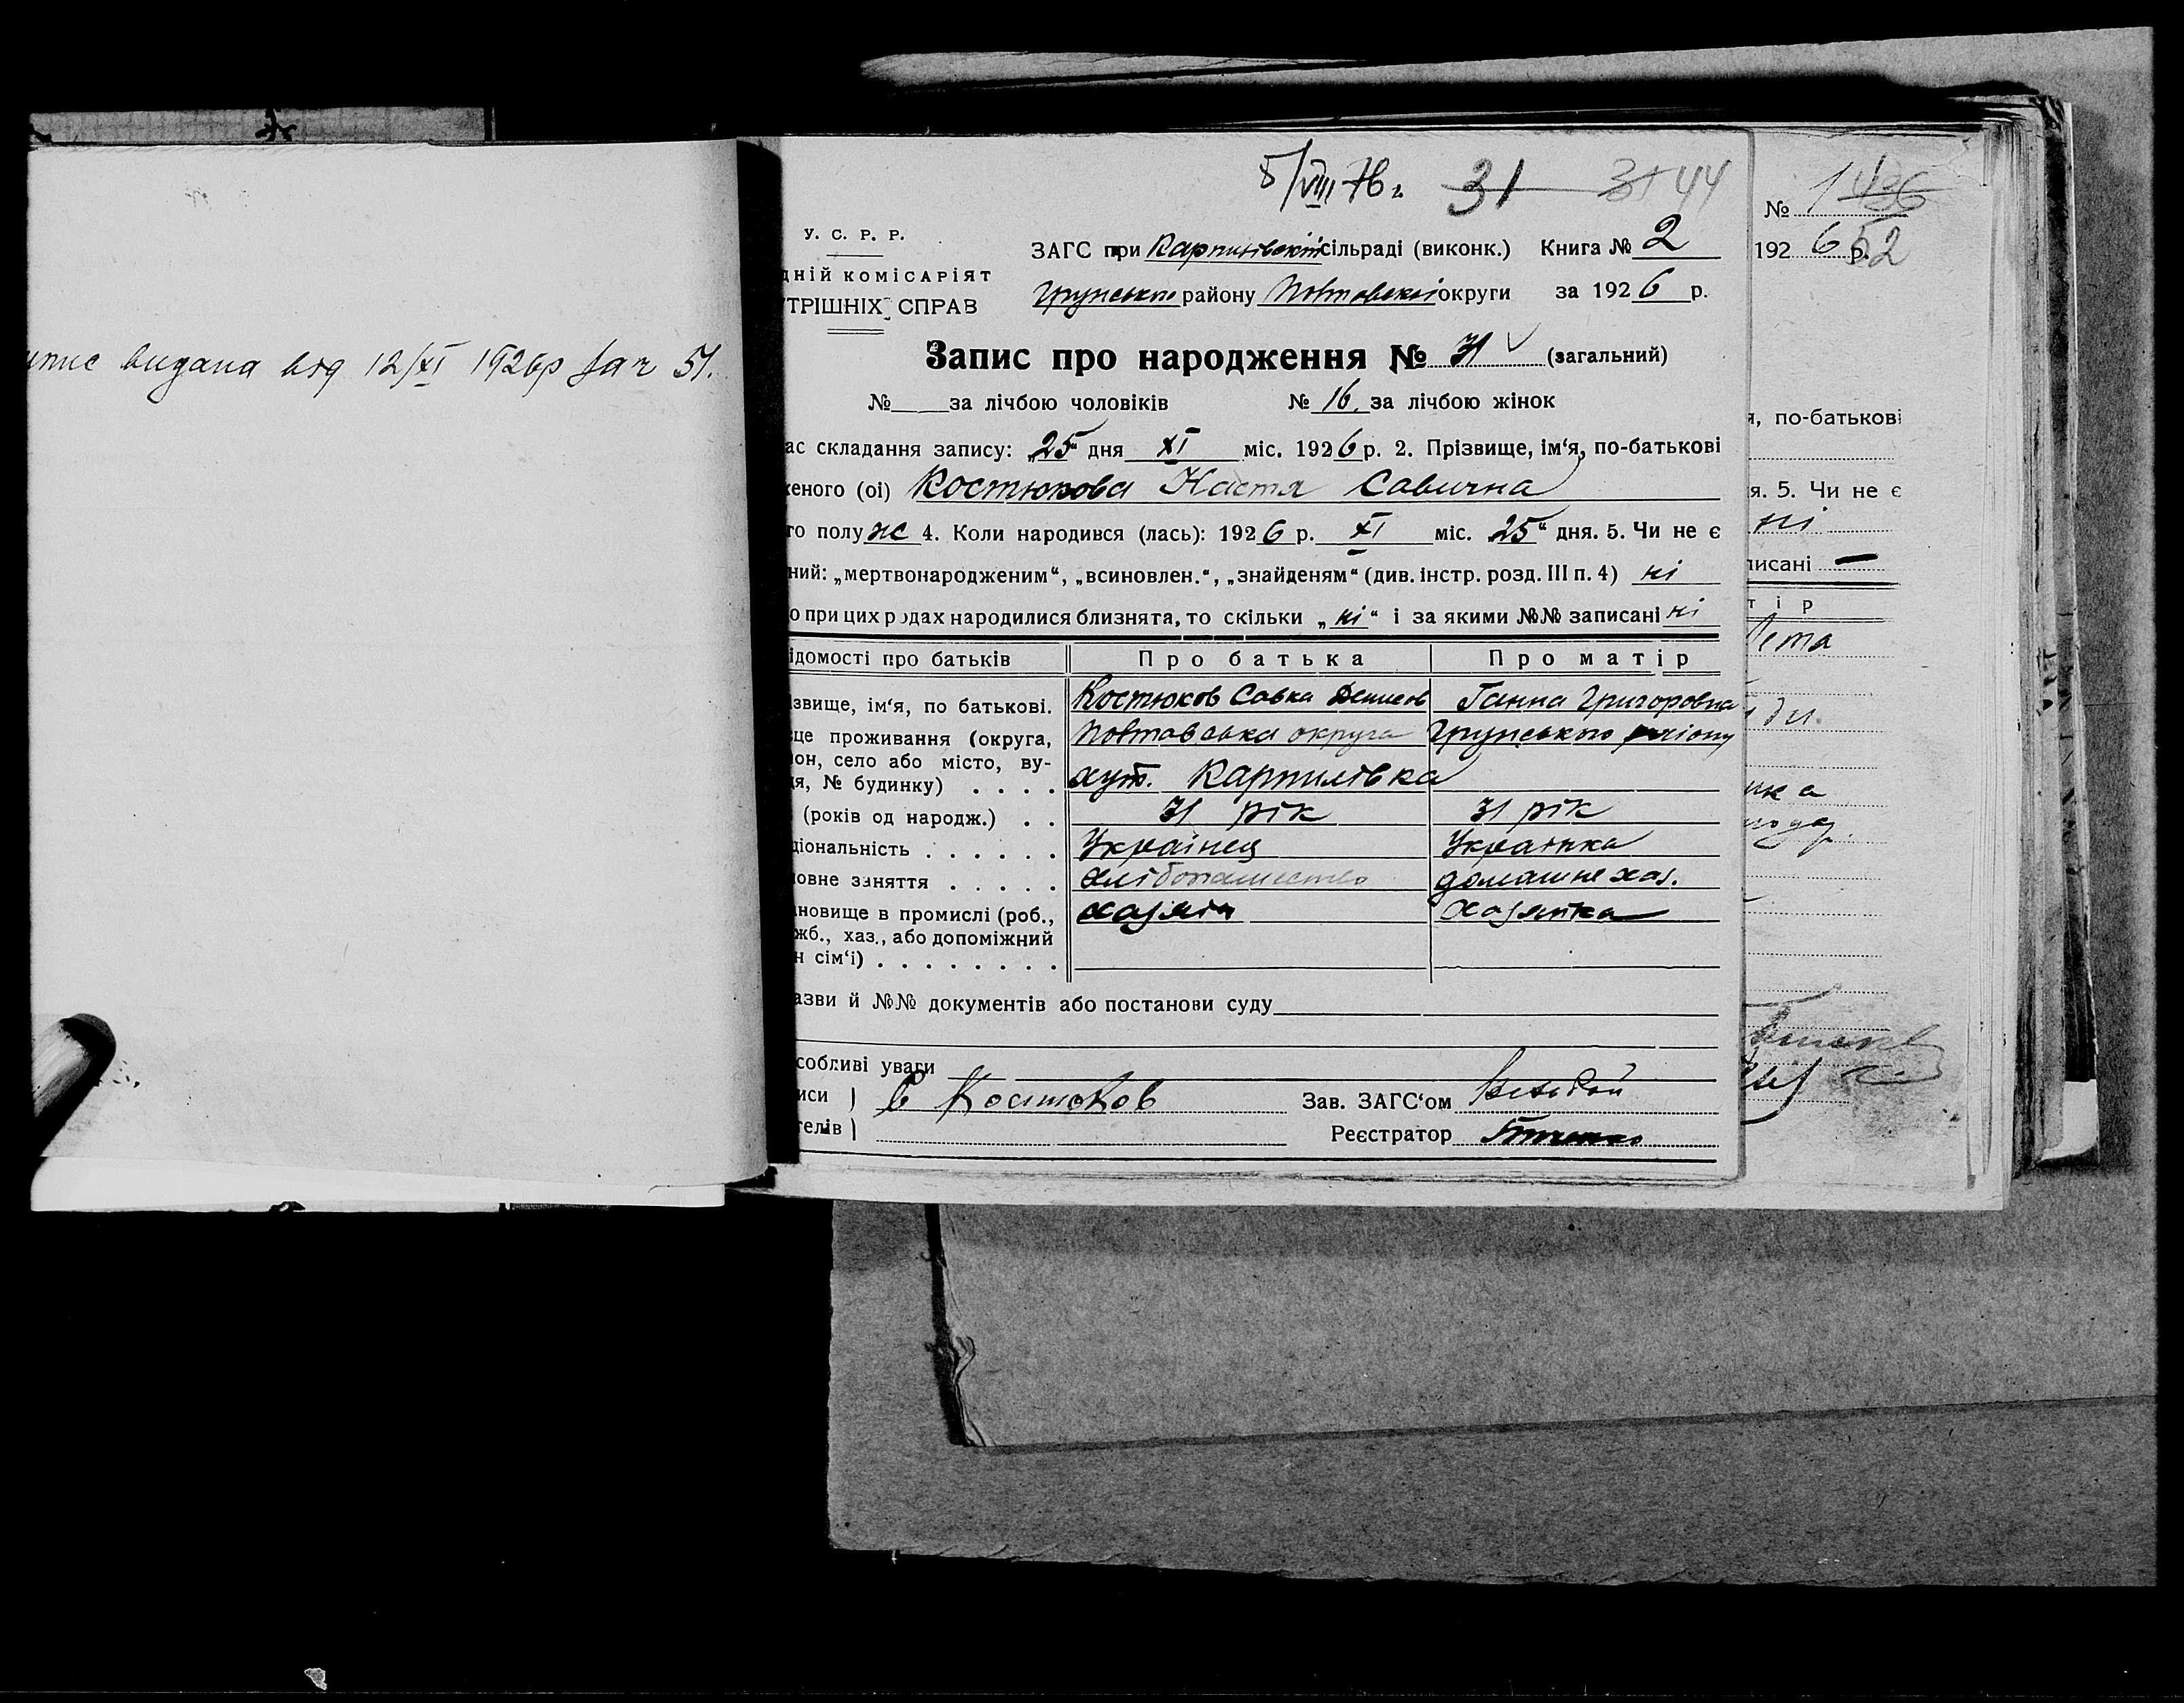 видана від 12/XI 1926р за № 51.
5/VIII 76 г 31 31 44
У. С. Р. Р.
ДНІЙ КОМІСАРІЯТ
ТРІШНІХ СПРАВ
ЗАГС при сільраді (виконк.) Книга № 2
Грунського району Полтавської округи за 1926 р.
Запис про народження № 31 (загальний)
№ за лічбою чоловіків № 16 за лічбою жінок
ас складання запису: „25“ дня XI міс. 1926 р. 2. Прізвище, ім‘я, по-батькові
женого (ої) Костюкова Настя Савична
го полу ж 4. Коли народився (лась): 1926 р. XI міс. „25“ дня. 5. Чи не є
ний: „мертвонародженим“, „всиновлен.“, „знайденям“ (див. інстр. розд. III п. 4) ні
о при цих родах народилися близнята, то скільки „ні“ і за якими №№ записані ні
ідомості про батьків Про батька Про матір
звище, ім‘я, по батькові. Костюков Савка Денисов Ганна Григоровна
це проживання (округа, Полтавська округа Грунського району
он, село або місто, ву-
я, № будинку) . . . . хут. Карпилівка
(років од народж.) . . 31 рік 31 рік
ціональність . . . . . . Українец Українка
овне заняття . . . . . хлібопашество домашнє хаз.
новище в промислі (роб., хазяін хазяйка
жб., хаз., або допоміжний
н сім‘ї) . . . . . . . .
азви й №№ документів або постанови суду
собливі уваги
иси ) С Костюков Зав. ЗАГС‘ом
телів ) Реєстратор
№ 1 436
1926 р. 52
я, по-батькові
я. 5. Чи не є
ні
писані —
т і р